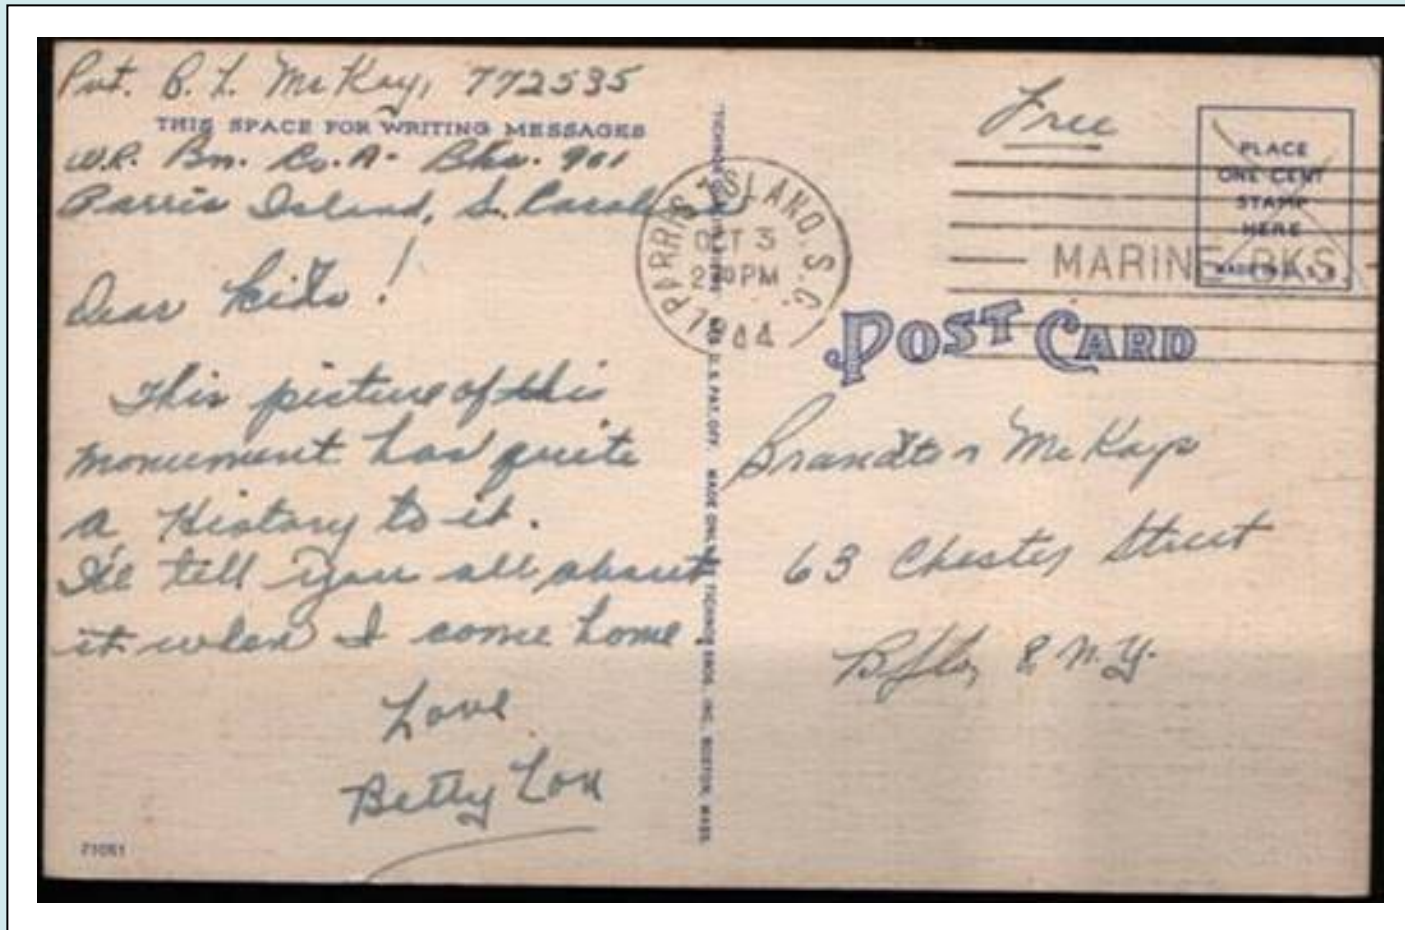 Pvt. B. L. McKay, 772535
THIS SPACE FOR WRITING MESSAGES
W.R. Bn. Co. A- Bks. 901
Parris Island, S. Carolina
Dear kids!
This picture of this
monument has quite
a History to it.
I'll tell you all about
it when I come home.
Love
Betty Lou
21051
TICHNOR QUALITY VIEWS REG. U. S. PAT. OFF. MADE ONLY BY TICHNOR BROS., INC., BOSTON, MASS.
PARRIS ISLAND, S.C.
OCT 3
2 PM
1944
Free
PLACE
ONE CENT
STAMP
HERE
MADE IN U. S. A.
MARINE BKS.
POST CARD
McKays
63 Chester Street
Bflo, 8 N.Y.